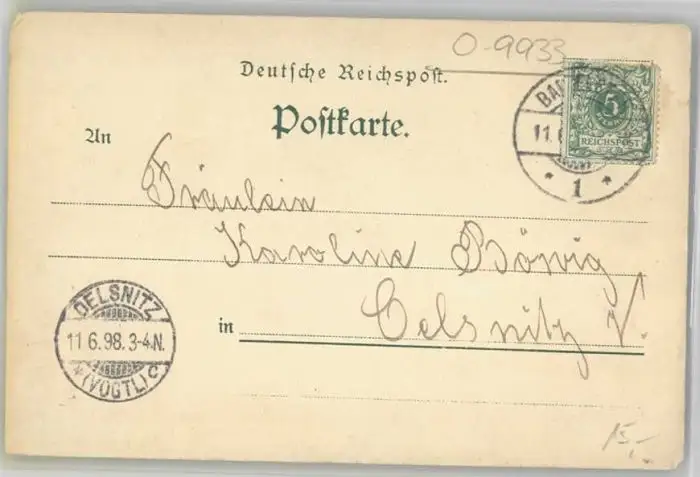 O-9933
Deutsche Reichspost.
Postkarte.
5
REICHSPOST
11.6
1
An
Fräulein
Karoline Böwig
in Oelsnitz V.
OELSNITZ
11 6.98. 3-4.N.
(VOGTL) C
15,-